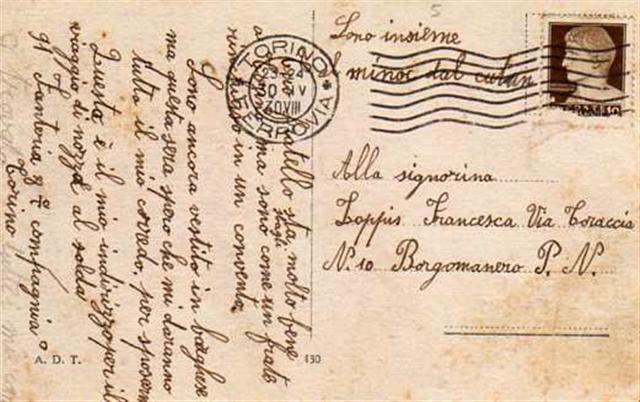 5
Sono insieme
minoc dal
TORINO
23-24
30 IV
XVIII
FERROVIA
Alla signorina
Zoppis Francesca Via Toraccia
N. 10 Borgomanero P. N.
fratello sta molto bene
ma sono come un frate
in un convento
Sono ancora vestito in borghese
ma questa sera spero che mi doranno
tutto il mio corredo, per sposarmi
Questo è il mio indirizzo per il
viaggio di nozze al solda
91 Fanteria 8ª compagnia
Torino
A. D. T.
130